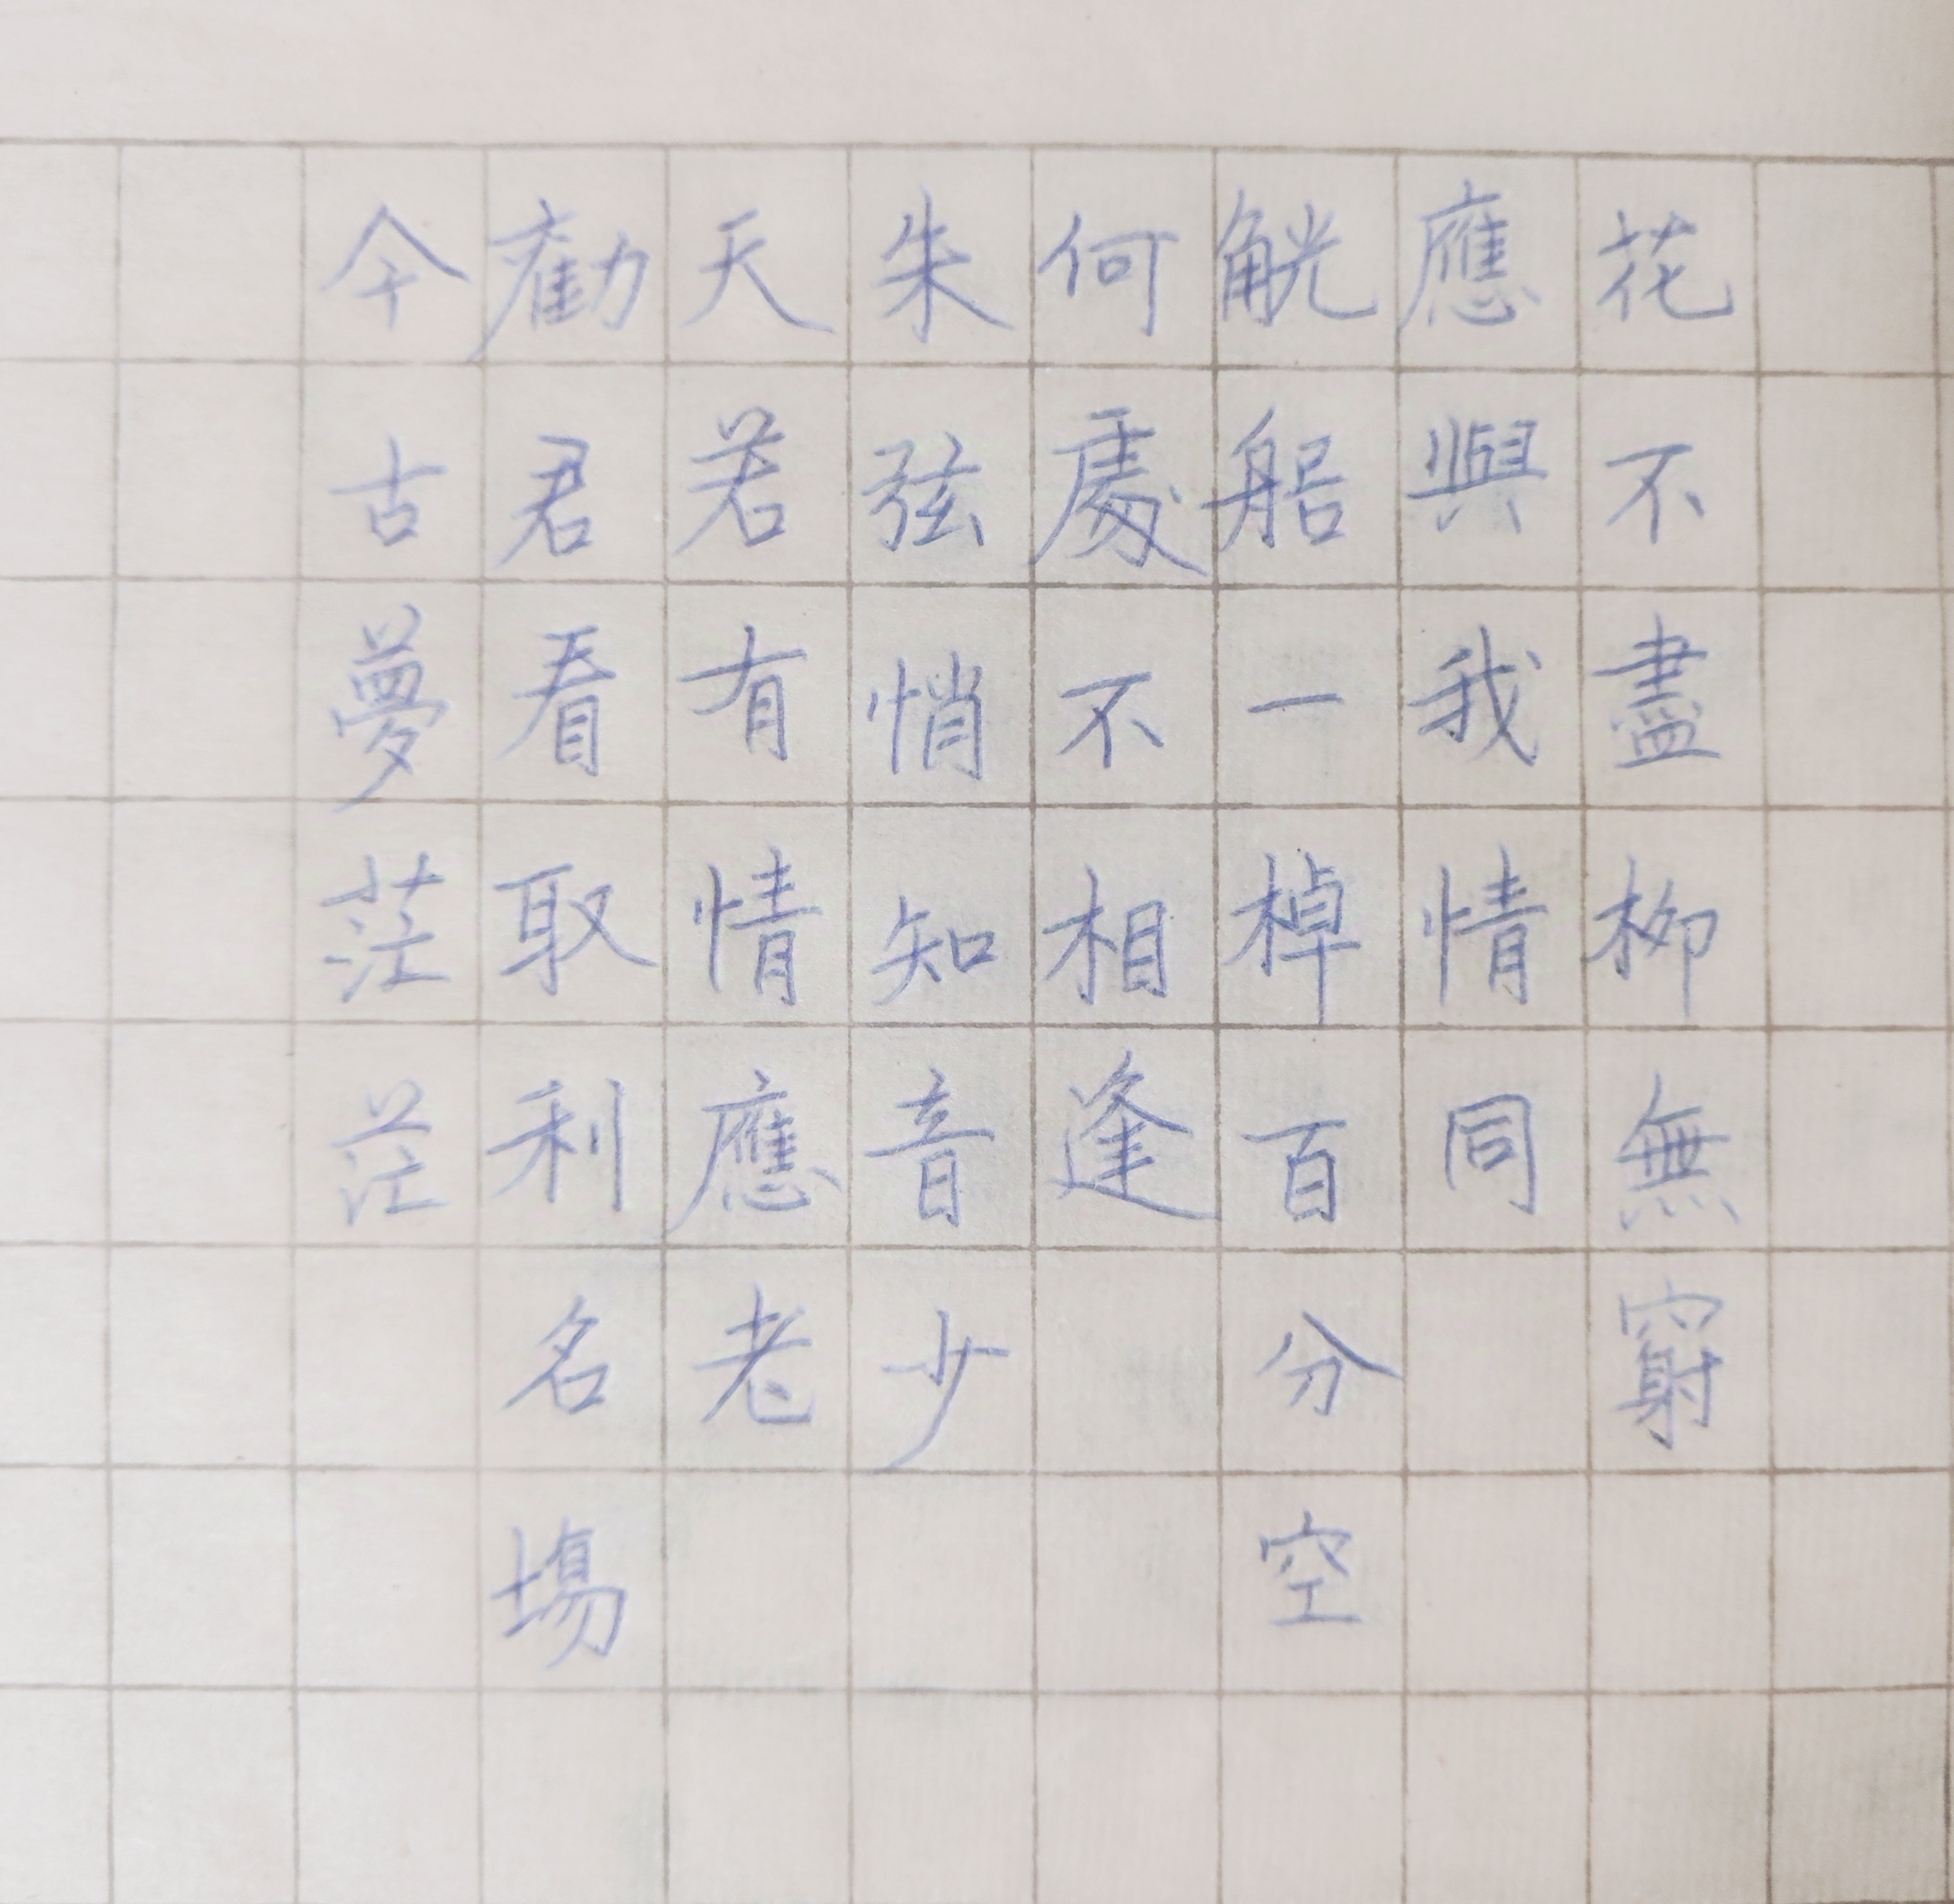 花不盡柳無窮
應與我情同
觥船一棹百分空
何處不相逢
朱弦悄知音少
天若有情應老
勸君看取利名場
今古夢茫茫